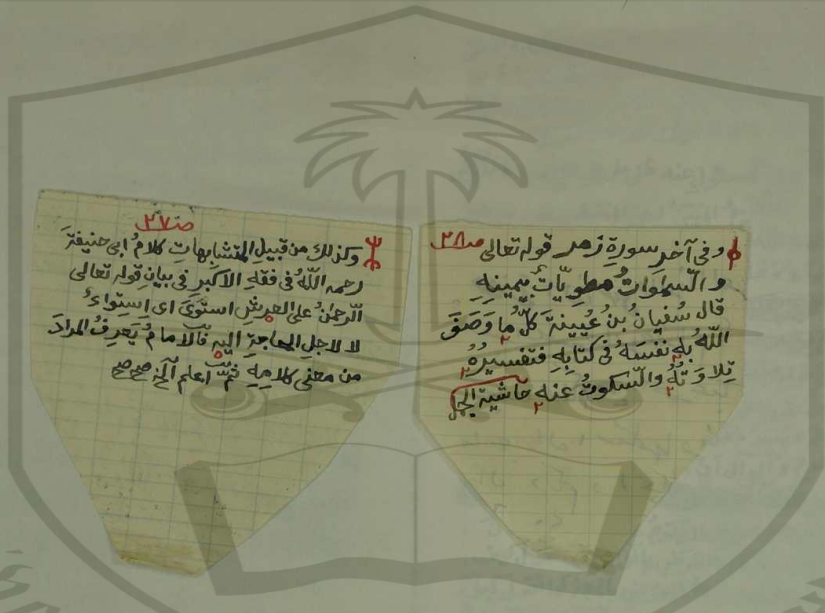 وفى آخر سورة زمر قوله تعالى صـ٢٨
والسمٰوات مطويّاتٌ بيمينهِ
قال سُفيانُ بنُ عُيينةَ كلُّ ما وَصَفَ
اللّٰهُ بهِ نفسَهُ فى كتابِهِ فتفسيرُهُ
تِلاوَتُهُ والسّكوتُ عنه حاشية الجمل
صـ٢٧
وكذلك من قبيل المتشابهاتِ كلامُ ابى حنيفةَ
رحمه اللّٰهُ فى فقهِ الاكبر فى بيانِ قولهِ تعالى
الرّحمٰنُ على العرشِ استَوىَ اى اِستِواءً
لا لاجلِ المحاجةِ اليهِ فالامامُ يَعرِفُ المرادَ
من معنى كلامِهِ ثمّ اعلم الخ صح صح